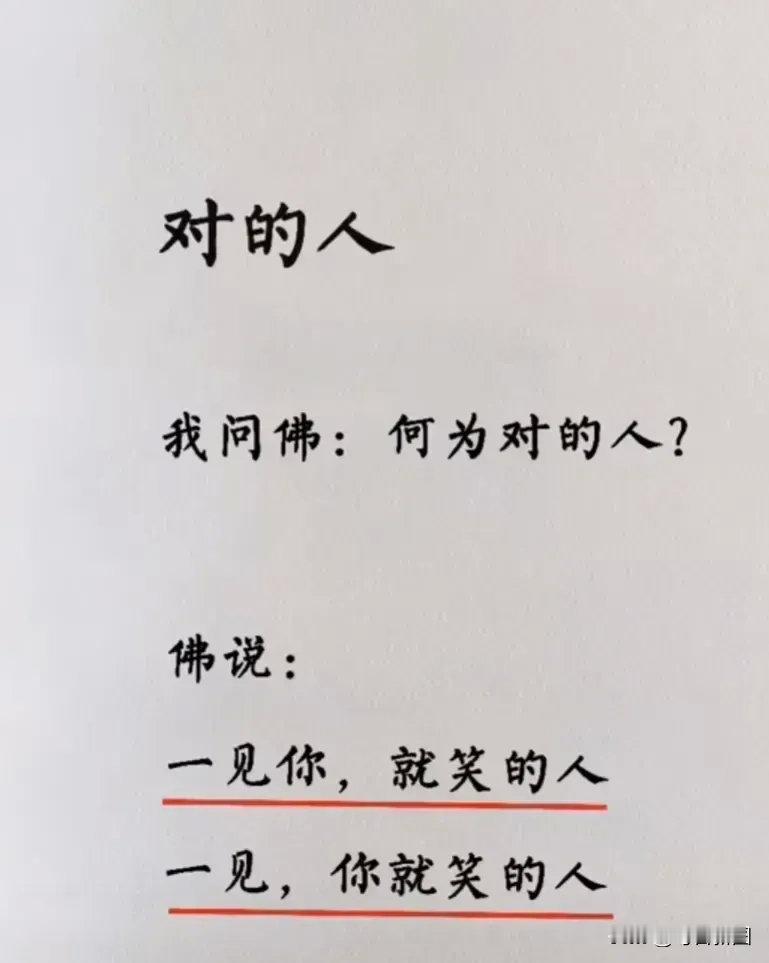 对的人
我问佛：何为对的人？
佛说：
一见你，就笑的人
一见，你就笑的人